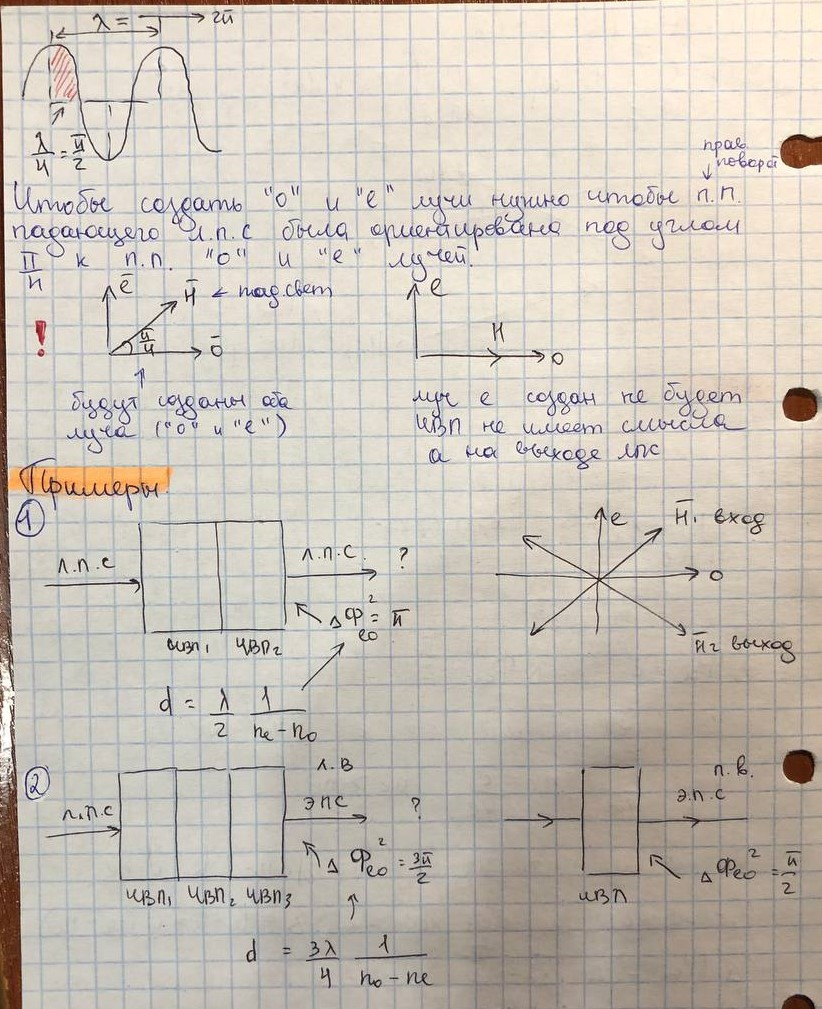 λ = → 2π
λ/4 = π/2
прав.
поворот
Чтобы создать "o" и "e" лучи нужно чтобы п.п.
падающего л.п.с была ориентирована под углом
π/4 к п.п. "o" и "e" лучей.
ē
H̄ ← пад.свет
!
π/4
ō
e
H
o
будут созданы оба
луча ("o" и "e")
луч e создан не будет
ЧВП не имеет смысла
а на выходе лпс
Примеры.
1
л.п.с
л.п.с. ?
ЧВП₁ ЧВП₂
ΔΦ²eo = π
d = λ/2 1/(ne-no)
e
H̄₁ вход
o
H̄₂ выход
2
л.п.с
л.в
эпс ?
ЧВП₁ ЧВП₂ ЧВП₃
ΔΦ²eo = 3π/2
d = 3λ/4 1/(no-ne)
п.в.
э.п.с
ЧВП
ΔΦeo² = π/2